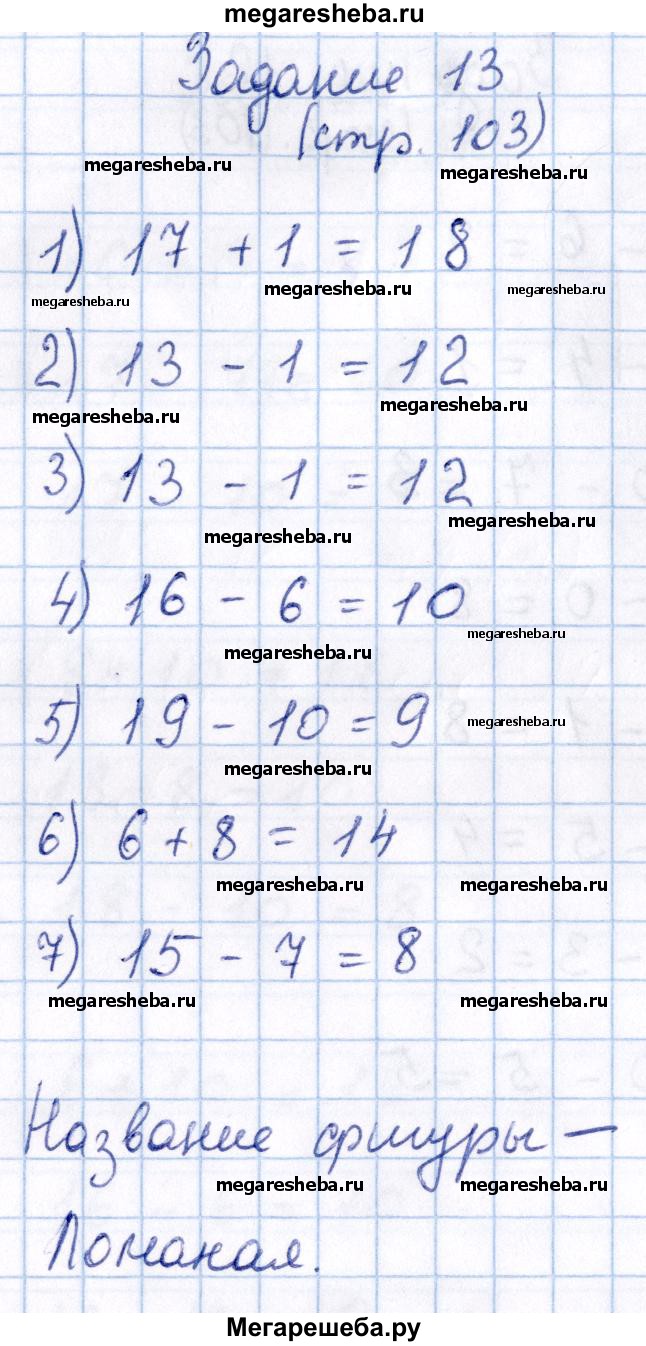 megaresheba.ru
Задание 13
(стр. 103)
megaresheba.ru megaresheba.ru
1) 17 + 1 = 18
megaresheba.ru megaresheba.ru megaresheba.ru
2) 13 - 1 = 12
megaresheba.ru megaresheba.ru
3) 13 - 1 = 12
megaresheba.ru megaresheba.ru
4) 16 - 6 = 10
megaresheba.ru megaresheba.ru
5) 19 - 10 = 9
megaresheba.ru megaresheba.ru
6) 6 + 8 = 14
megaresheba.ru megaresheba.ru
7) 15 - 7 = 8
megaresheba.ru megaresheba.ru
Название фигуры —
megaresheba.ru megaresheba.ru
Ломаная.
Мегарешеба.ру